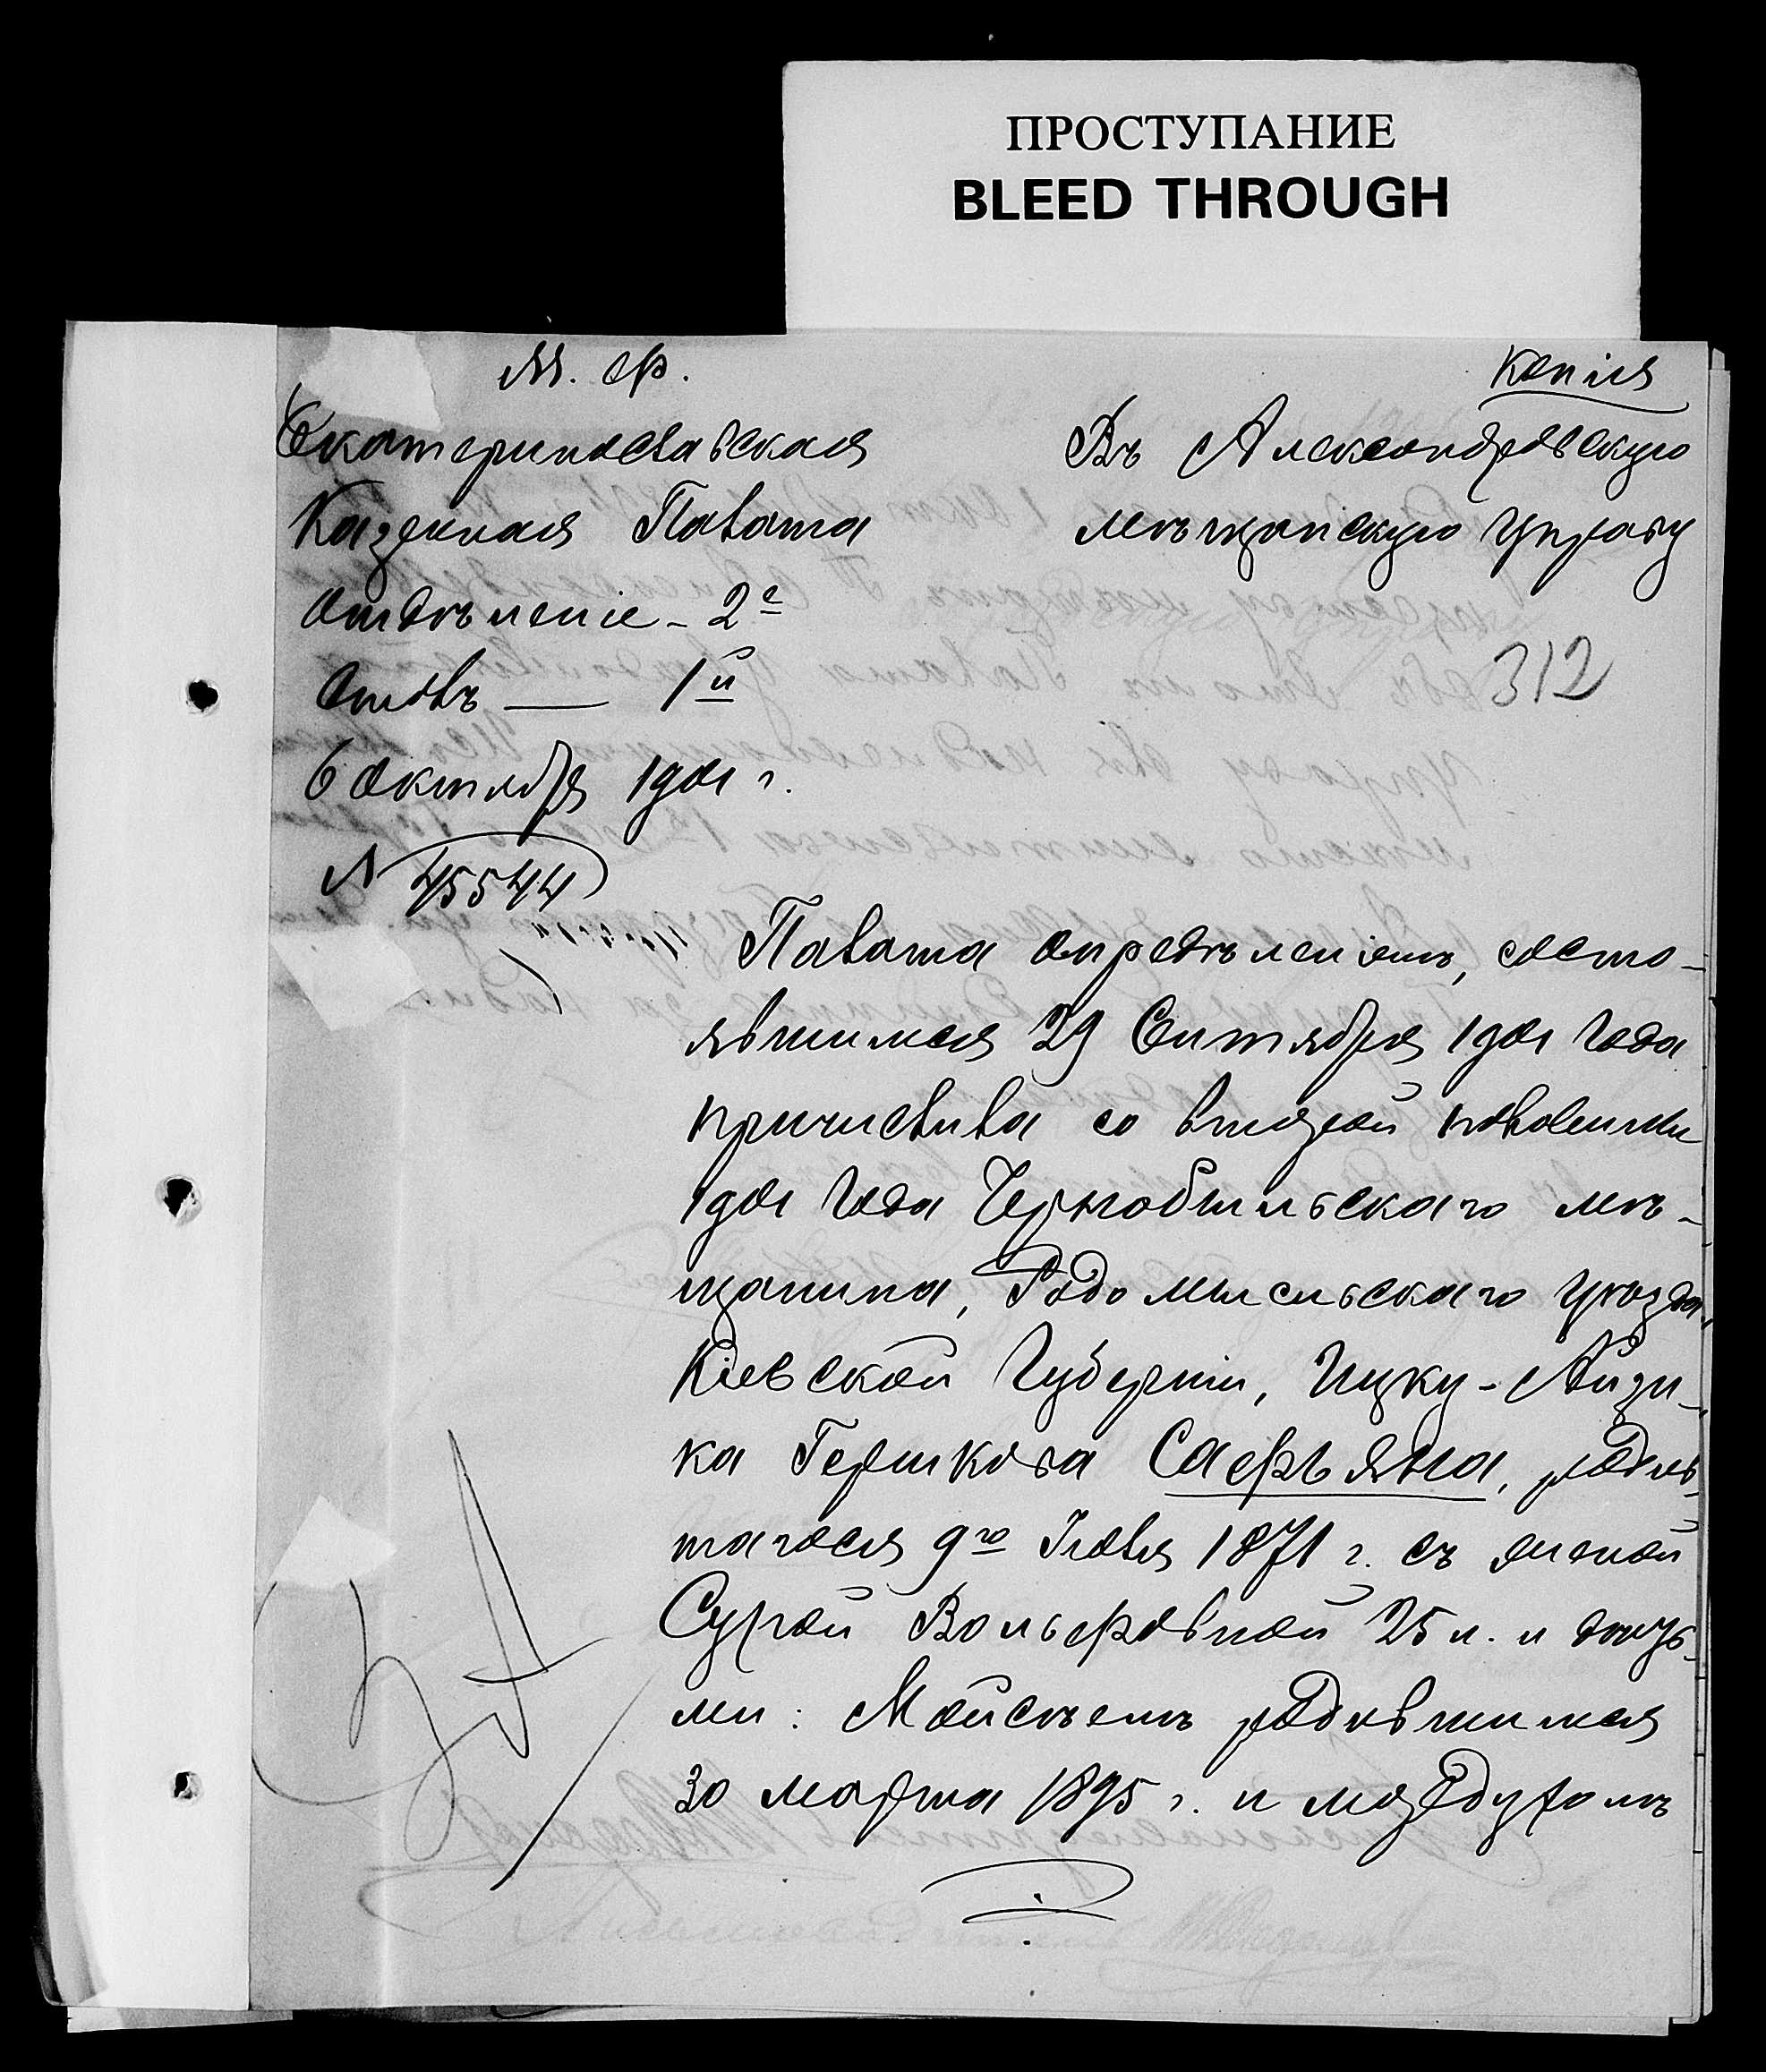 ПРОСТУПАНИЕ
BLEED THROUGH
М. Ф.
Копія
Екатеринославская
Казенная Палата
Отдѣленіе - 2е
Столъ — 1й
6 Октября 1901 г.
N 45544
Въ Александровскую
мѣщанскую Управу
312
Палата опредѣленіемъ, состо-
явшимся 29 Сентября 1901 года
причислила со второй половины
1901 года Чернобыльскаго мѣ-
щанина, Радомысльскаго уѣзда,
Кіевской Губерніи, Ицку-Айзи-
ка Гершкова Сафьяна, родив-
шагося 9го Іюля 1871 г. съ женой
Сурой Вольфовной 25 л. и дѣть-
ми: Мойсѣемъ родившимся
30 марта 1895 г. и